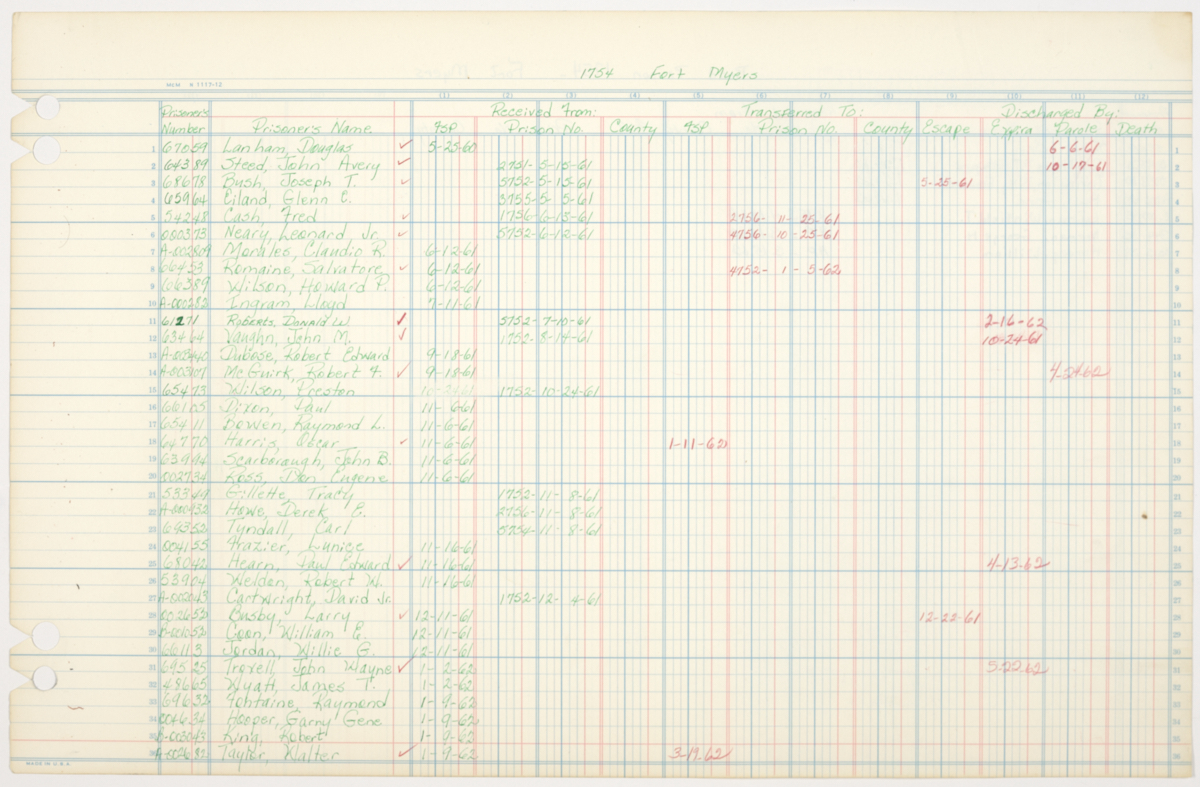 1754 Fort Myers
MCM K 1113-12
(1) (2) (3) (4) (5) (6) (7) (8) (9) (10) (11) (12)
Received From: Transferred To: Discharged By:
Prisoner's Number Prisoner's Name Prison No. County Prison No. County Escape Expira Parole Death
1 67059 Lanham, Douglas ✓ 5-25-60 6-6-61 1
2 64389 Steed, John Avery ✓ 2751-5-15-61 10-17-61 2
3 68678 Bush, Joseph T. ✓ 5752-5-15-61 5-25-61 3
4 65964 Eiland, Glenn C. 3755-5 5-61 4
5 54248 Cash, Fred ✓ 1756-6-13-61 2756- 11- 25-61 5
6 000373 Neary, Leonard, Jr. ✓ 5752-6-12-61 4756- 10-25-61 6
7 A-002809 Morales, Claudio R. 6-12-61 7
8 66453 Romaine, Salvatore ✓ 6-12-61 4752- 1 - 5-62 8
9 606389 Wilson, Howard P. 6-12-61 9
10 A-000282 Ingram, Lloyd 7-11-61 10
11 61271 Roberts, Donald W. ✓ 5752-7-10-61 2-16-62 11
12 63464 Vaughn, John M. ✓ 1752-8-14-61 10-24-61 12
13 Dubose, Robert Edward 9-18-61 13
14 McGuirk, Robert F. ✓ 9-18-61 4-24-62 14
15 65473 Wilson, Preston 10-24-61 1752-10-24-61 15
16 66105 Dixon, Paul 11- 6-61 16
17 65411 Bowen, Raymond L. 11-6-61 17
18 64770 Harris, Oscar ✓ 11-6-61 1-11-62 18
19 63994 Scarborough, John B. 11-6-61 19
20 002734 Ross, Don Eugene 11-6-61 20
21 53349 Gillette, Tracy 1752-11- 8-61 21
22 A-000932 Howe, Derek E. 2756-11- 8-61 22
23 69352 Tyndall, Carl 5754-11- 8-61 23
24 004155 Frazier, Eunice 11-16-61 24
25 68042 Hearn, Paul Edward ✓ 11-16-61 4-13-62 25
26 53904 Weldon, Robert W. 11-16-61 26
27 A-002043 Cartwright, David Jr. 1752-12- 4-61 27
28 002653 Busby, Larry ✓ 12-11-61 12-22-61 28
29 Coon, William E. 12-11-61 29
30 66113 Jordan, Willie G. 12-11-61 30
31 69525 Troxell, John Wayne ✓ 1-2-62 5-22-62 31
32 48665 Wyatt, James T. 1- 2-62 32
33 69632 Fontaine, Raymond 1- 9-62 33
34 004634 Hooper, Garny Gene 1- 9-62 34
35 King, Robert 1- 9-62 35
36 Taylor, Walter ✓ 1-9-62 3-19-62 36
MADE IN U.S.A.